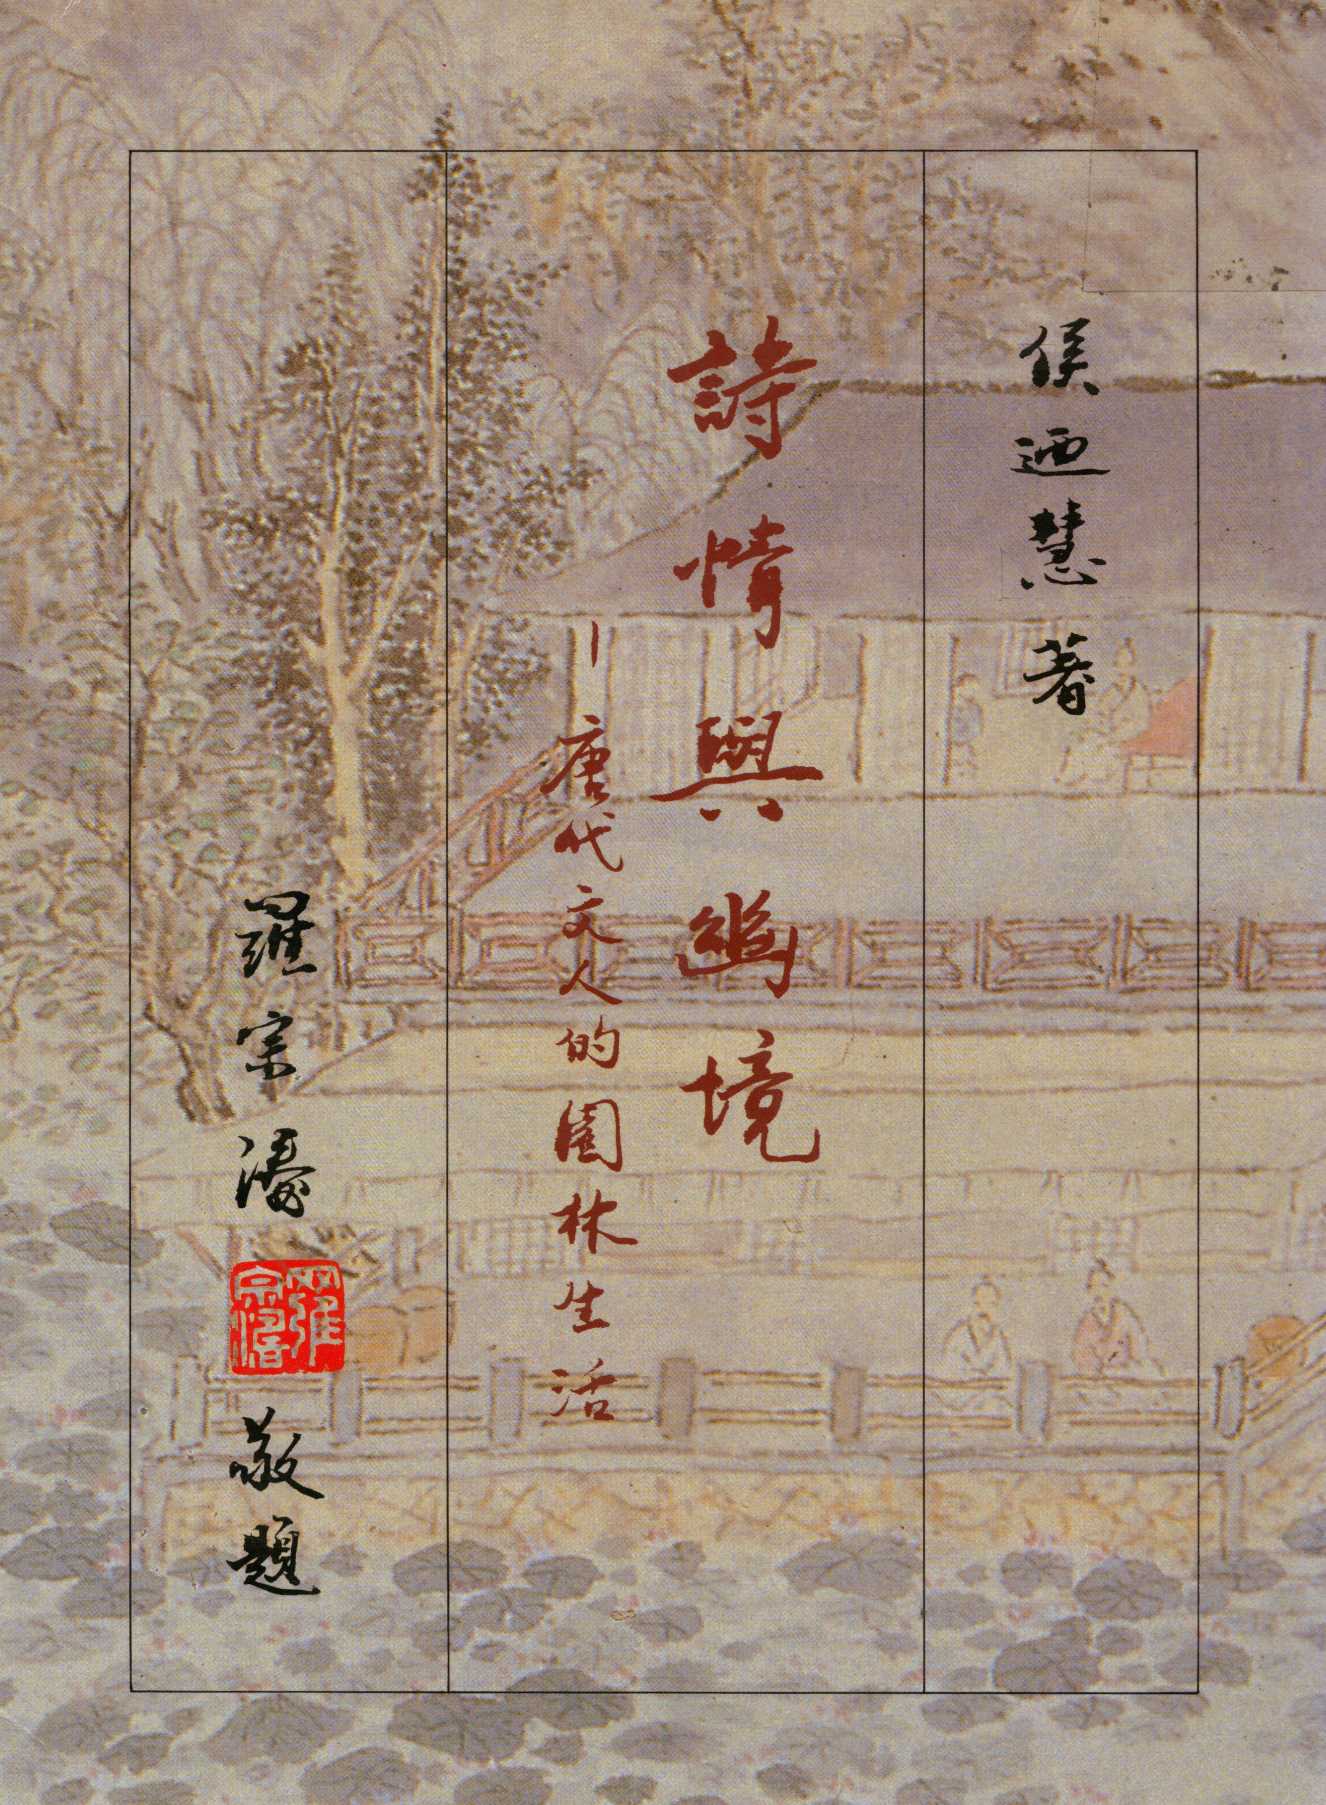 侯迺慧著
詩情與幽境
—唐代文人的園林生活
羅宗濤
敬題